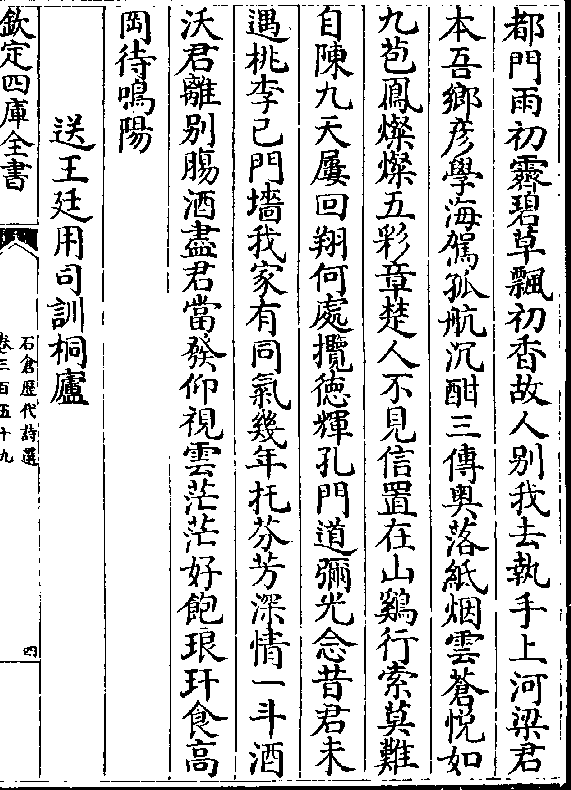 都門雨初霽碧草飄初香故人别我去執手上河梁君
本吾鄉彦學海駕孤航沉酣三傳奥落紙烟雲蒼恱如
九苞鳳燦燦五彩章楚人不見信置在山鷄行索莫難
自陳九天屢回翔何處攬徳輝孔門道彌光念昔君未
遇桃李已門墻我家有同氣幾年托芬芳深情一斗酒
沃君離别腸酒盡君當發仰視雲茫茫好飽琅玕食高
岡待鳴陽
送王廷用司訓桐廬
欽定四庫全書
石倉歴代詩選
卷三百五十九
四